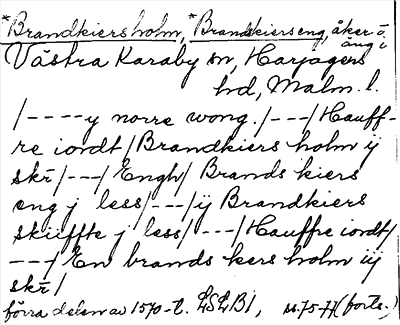 *Brandkiersholm, *Brandskierseng, åker o.
äng i
Västra Karaby sn, Harjagers
hd, Malm. l.
/----y norre wong./---/Hauff-
re iordt/Brandkiers holm ij
skr̄/---/Engh/Brands kiers
eng j less/---/ij Brandkiers
skiiffte j less/---/Hauffre iordt/
---/En brands kers holm iij
skr̄/
förra delen av 1570-t. LSLB1, s. 75-77 (forts.)